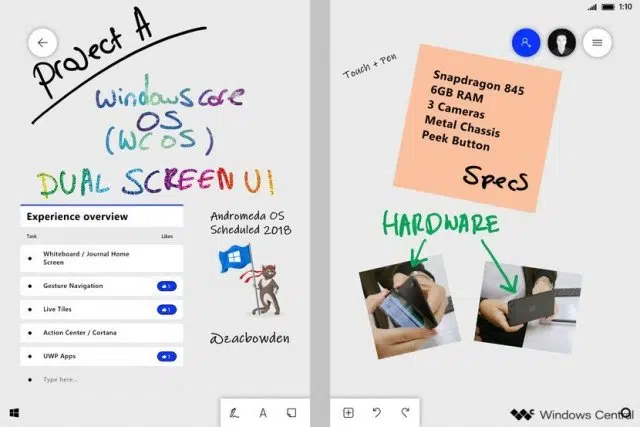 1:10
Project A
Windows core
OS
(WCOS)
DUAL SCREEN UI
Experience overview
Task Likes
Whiteboard / Journal Home
Screen
Gesture Navigation 1
Live Tiles 1
Action Center / Cortana
UWP Apps 1
Type here...
Andromeda OS
Scheduled 2018
@zacbowden
A
Touch + Pen
Snapdragon 845
6GB RAM
3 Cameras
Metal Chassis
Peek Button
Specs
HARDWARE
Windows Central